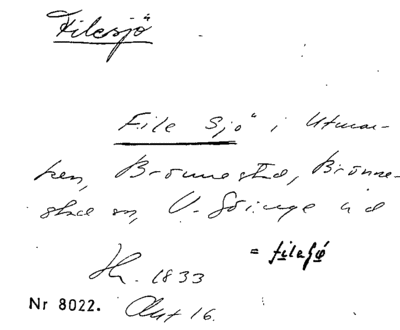 Filesjö
File Sjö i Utmar-
ken, Brönnestad, Brönne-
stad sn, V. Göinge hd
= fileſiö
Sk. 1833
Nr 8022. Akt 16.